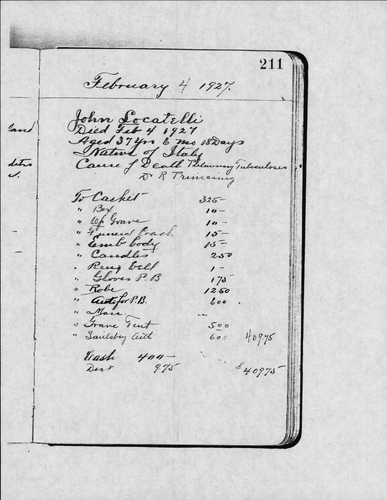 211
February 4 1927.
land
John Locatelli
Died Feb 4 1927
Aged 37 yrs 8 mo 18 Days
Native of Italy
Cause of Death Pulmonary Tuberculoses
Dr R
To Casket 325-
" Box 10-
" Op Grave 10-
" Funeral Coach 15-
" Emb body 15-
" Candles 250
" Bell 1-
" Gloves P.B 175
" Robe 1250
" Auto for P.B. 600
" Mass
" Grave Tent 500
" Auto 600 40975
Cash 400-
Dis 975 $40975